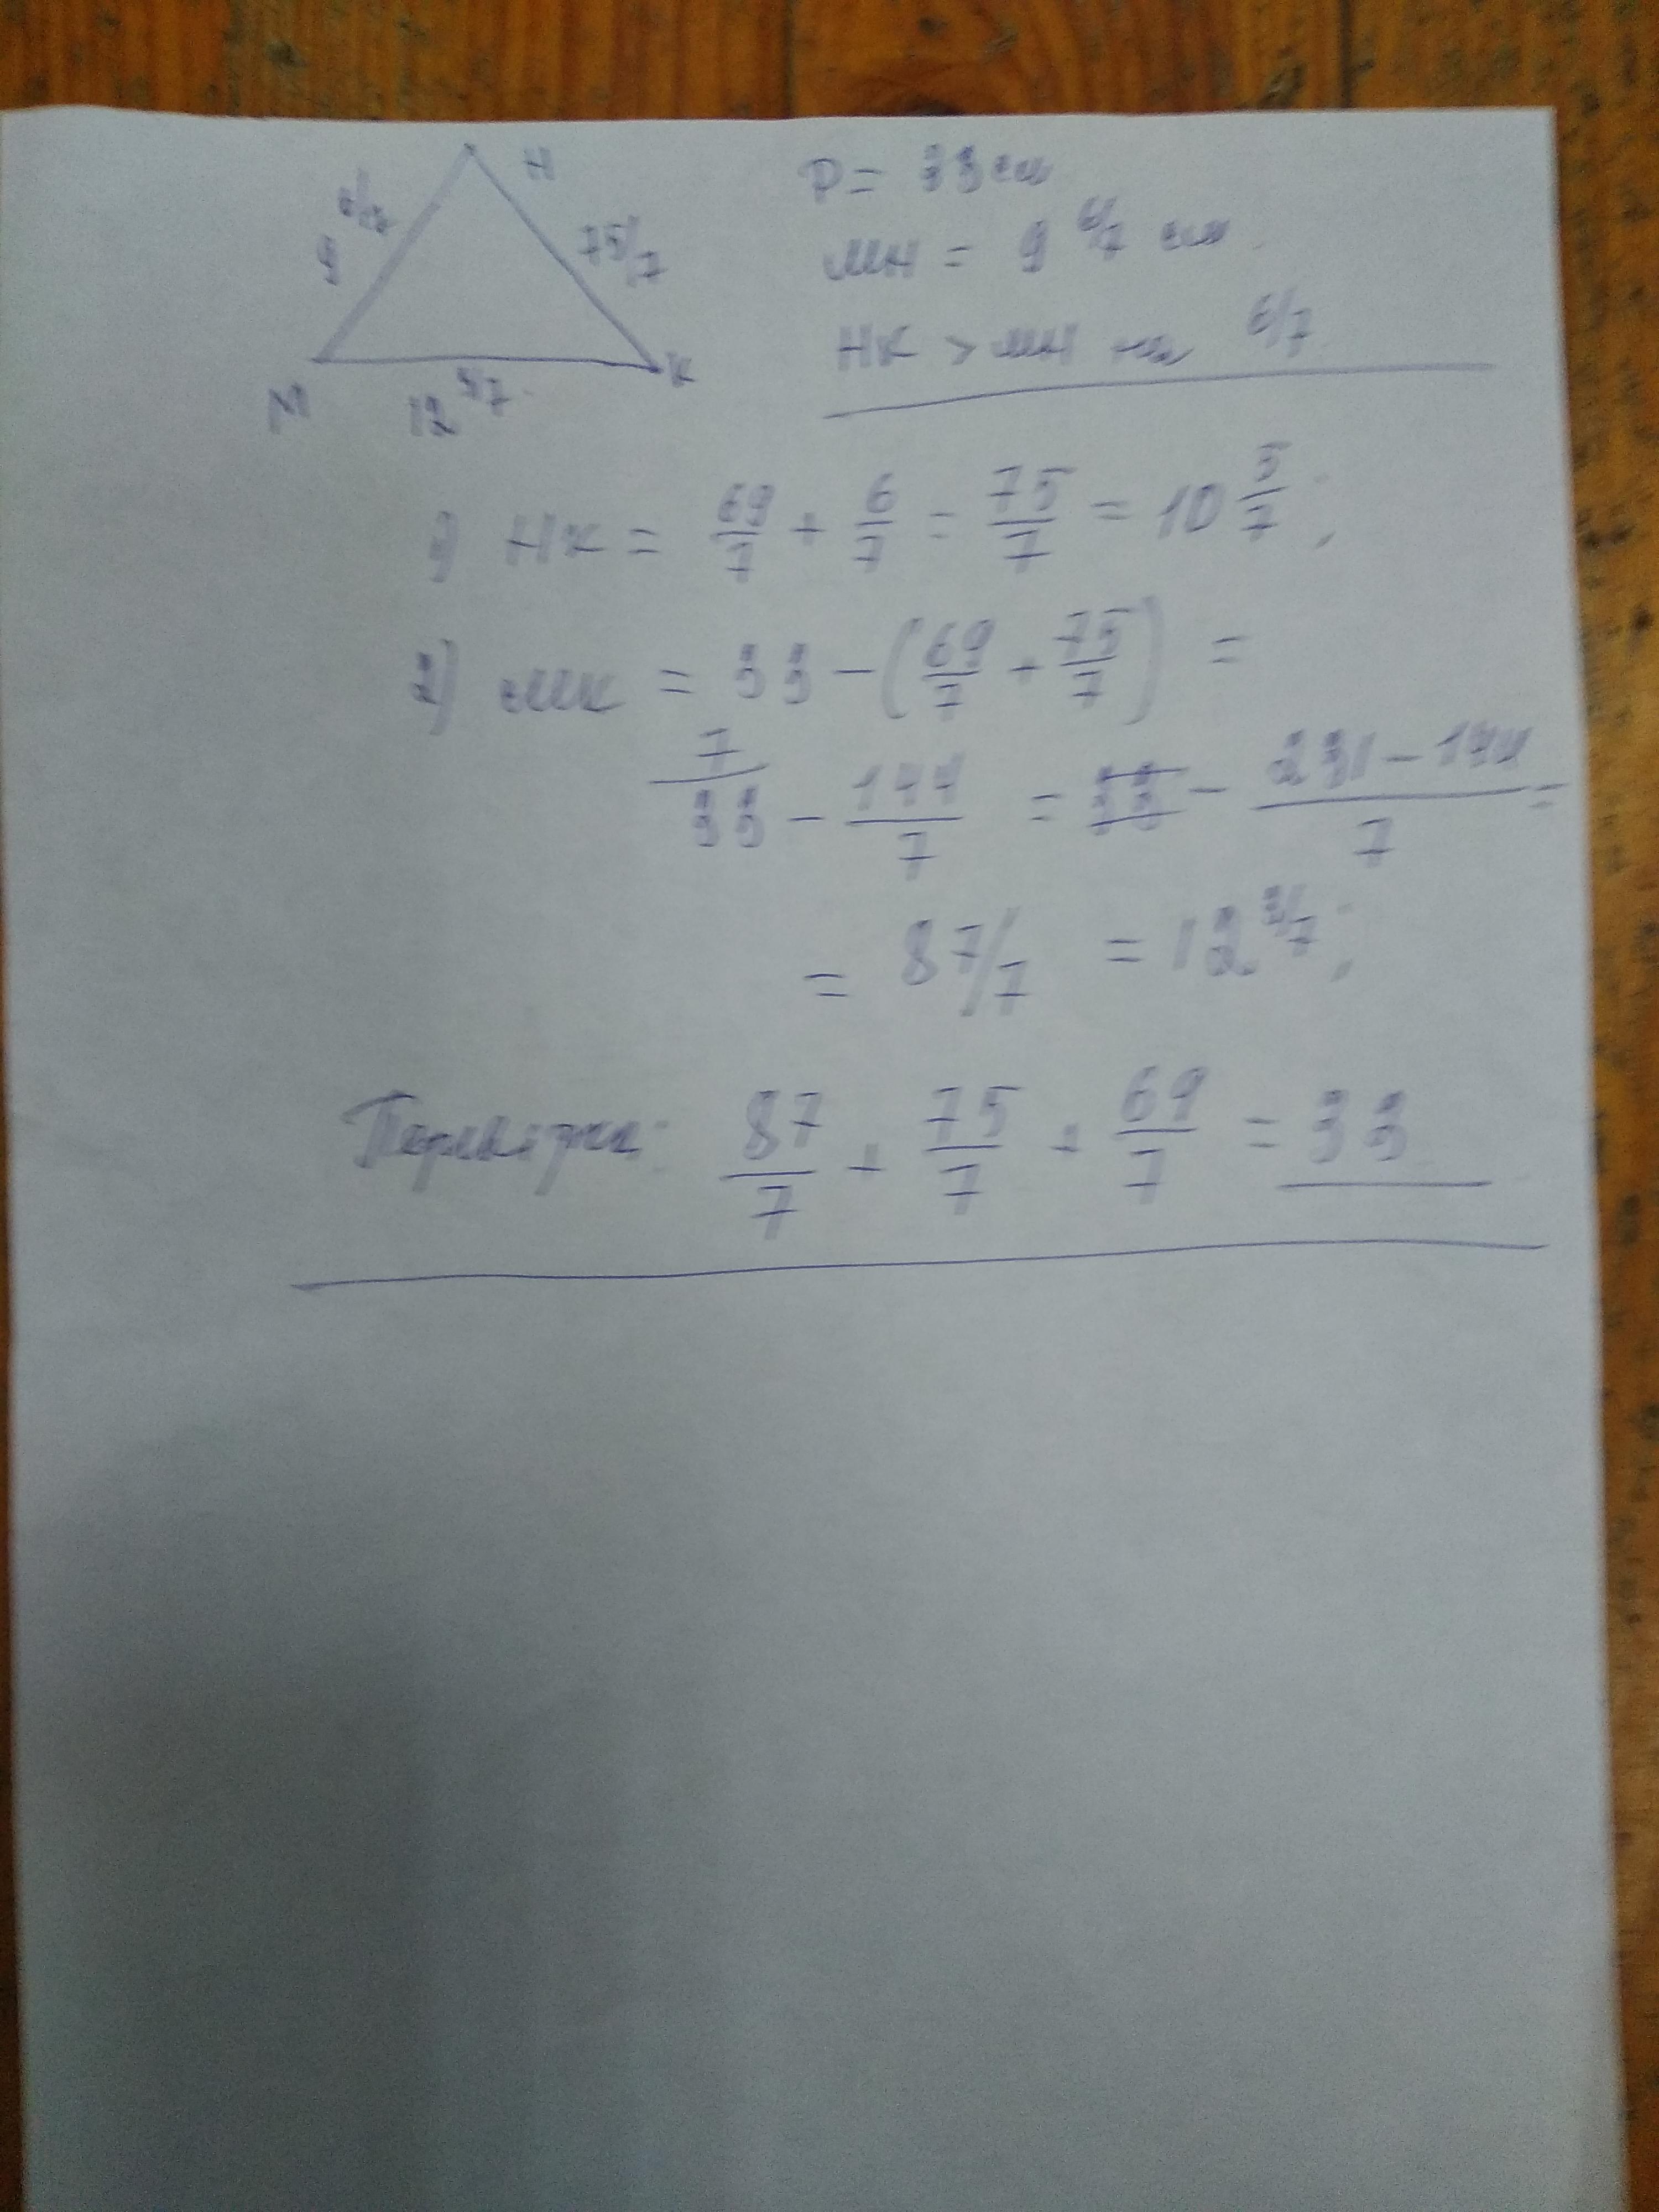 H
9 6/7
75/7
M
K
12 3/7
P = 33 см
МН = 9 6/7 см
НК > МН на 6/7
1) НК = 69/7 + 6/7 = 75/7 = 10 5/7;
2) МК = 33 - (69/7 + 75/7) =
7/33 - 144/7 = 33 - 231-144/7 =
= 87/7 = 12 3/7;
Перевірка: 87/7 + 75/7 + 69/7 = 33